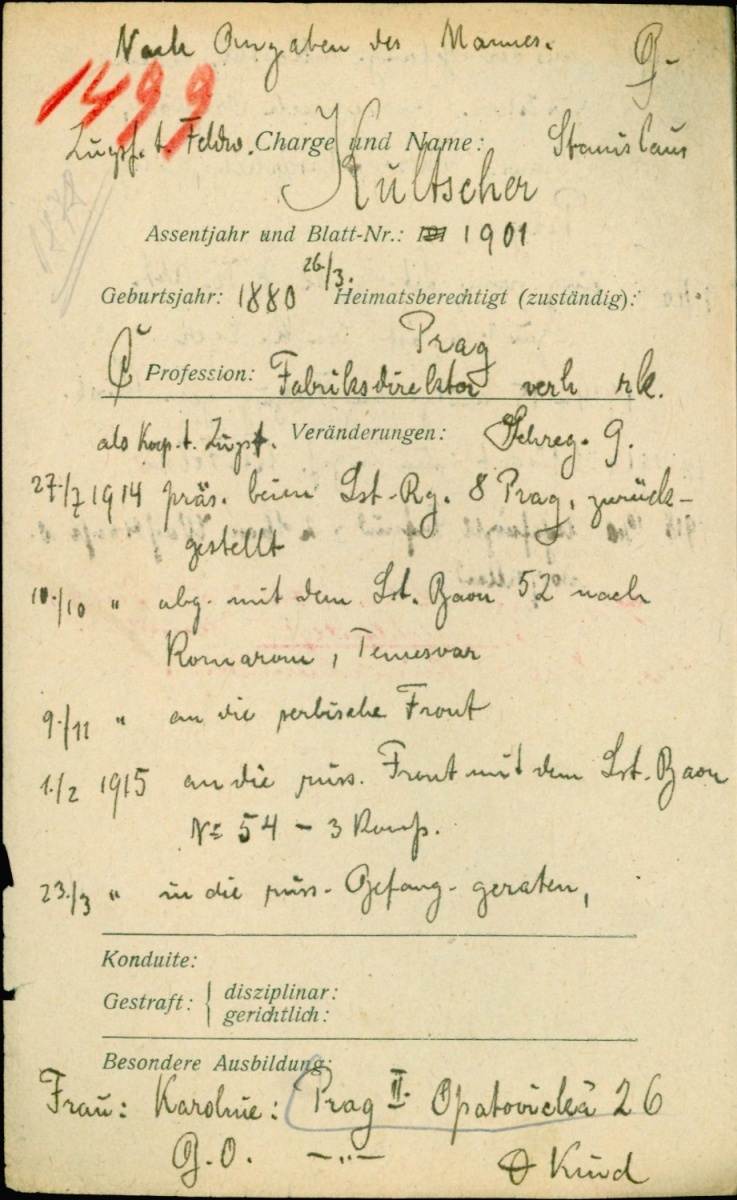 Nach Angaben des Mannes.
1499
Zugsf. t. Feldw. Charge und Name: Stanislaus
Kultscher
Assentjahr und Blatt-Nr.: 1901
Geburtsjahr: 1880 26/3. Heimatsberechtigt (zuständig):
Prag
Č Profession: Fabriksdirektor verh rk.
als Korp. t. Zugsf. Veränderungen: Schreg. 9.
27./7 1914 präs. beim Lst-Rg. 8 Prag, zurück-
gestellt
10./10 " abg. mit dem Lst. Baon 52 nach
Komarom, Temesvar
9./11 " an die serbische Front
1./2 1915 an die russ. Front mit dem Lst. Baon
№ 54 - 3 Komp.
23./3 " in die russ. Gefang. geraten,
Konduite:
Gestraft: { disziplinar:
gerichtlich:
Besondere Ausbildung:
Frau: Karoline: Prag II. Opatovická 26
G.O. —"—
0 Kind